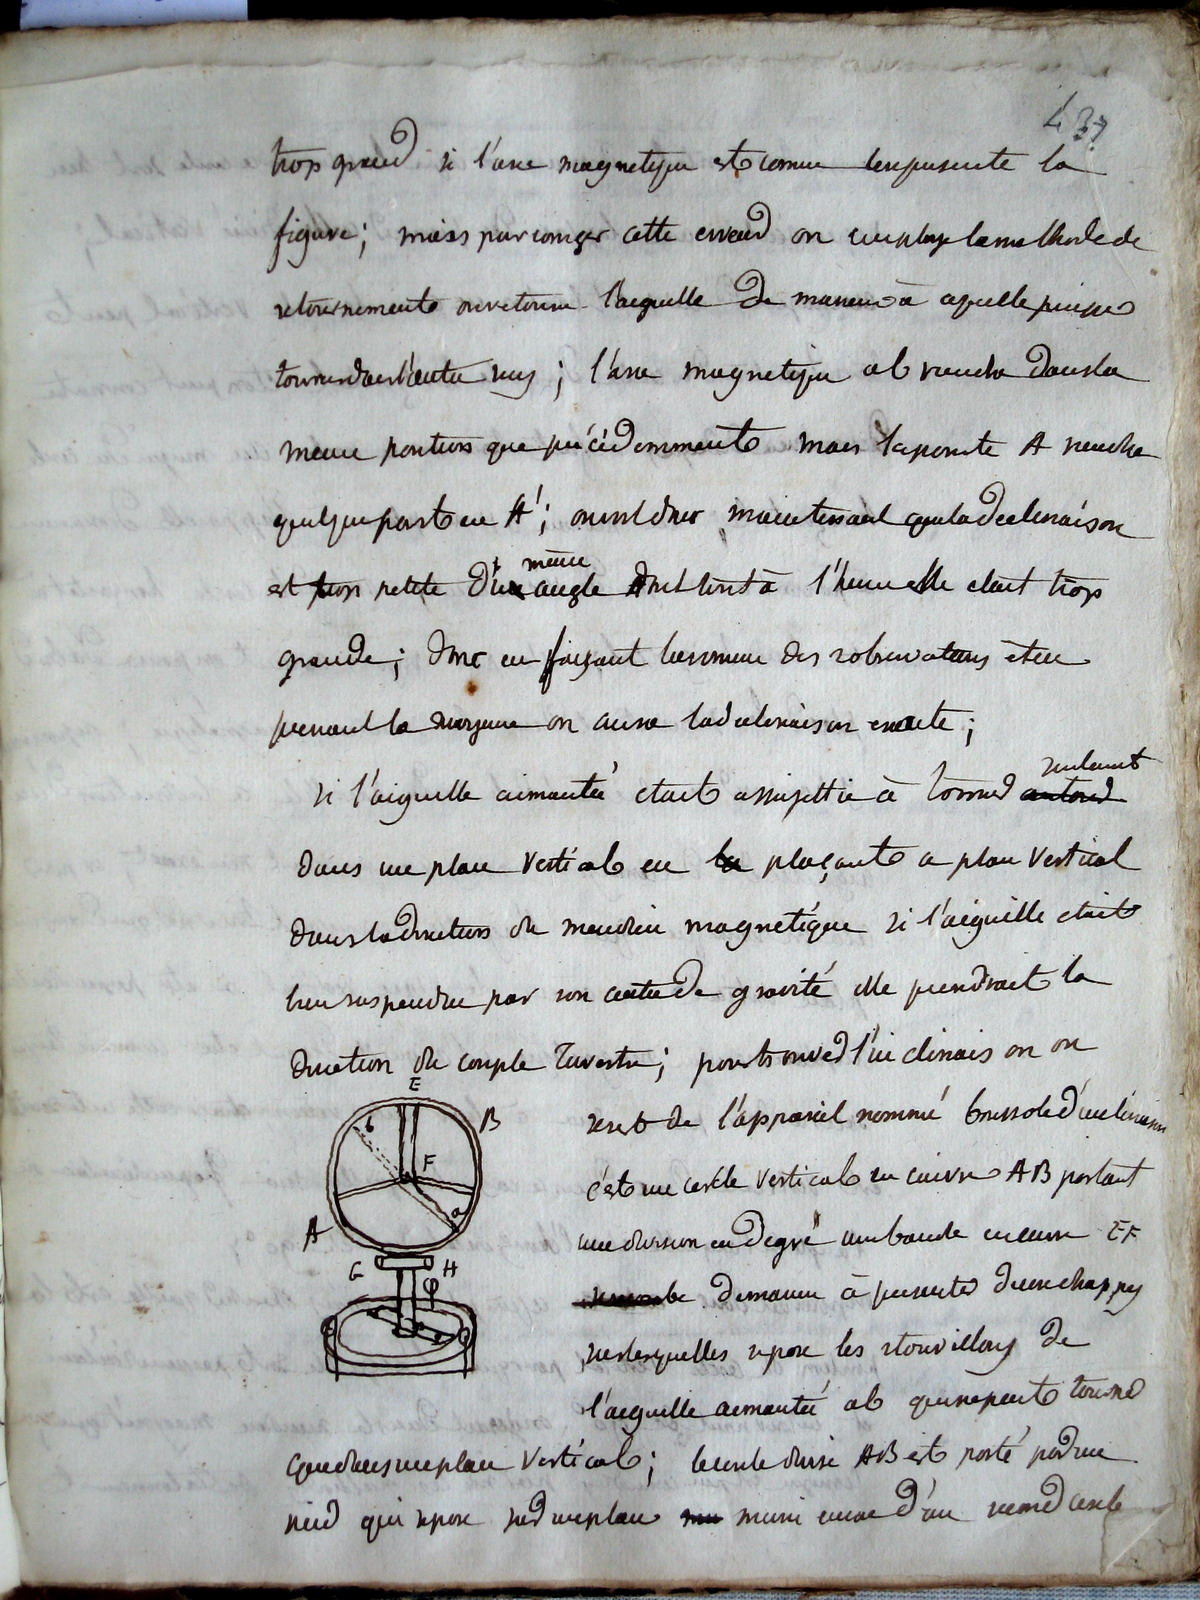 437
trop grand si l'axe magnetique est comme le represente la
figure; mais pour corriger cette erreur on employe la methode de
retournement on retourne l'aiguille de maniere à ce qu'elle puisse
tourner dans l'autre sens; l'axe magnetique ab viendra dans la
meme position que précédemment mais la pointe A viendra
quelque part en A'; on voit donc maintenant que la declinaison
est trop petite d'un même angle dont tout à l'heure elle etait trop
grande; donc en faisant la somme des 2 observations et en
prenant la moyenne on aura la declinaison exacte;
si l'aiguille aimantée etait assujettie à tourner autour seulement
dans un plan vertical en la plaçant ce plan vertical
dans la direction du meridien magnetique si l'aiguille etait
bien suspendue par son centre de gravité elle prendrait la
direction du couple terrestre; pour trouver l'inclinaison on
E
B
b
F
a
A
G H
se sert de l'appareil nommé boussole d'inclinaison
c'est un cercle vertical en cuivre AB portant
une division en degré une bande en cuivre EF
de maniere à presenter deux chappes
sur lesquelles repose les tourillons de
l'aiguille aimantée ab qui ne peut tourner
que dans un plan vertical; le cercle divisé AB est porté par un
pied qui repose sur un plan muni encore d'un second cercle